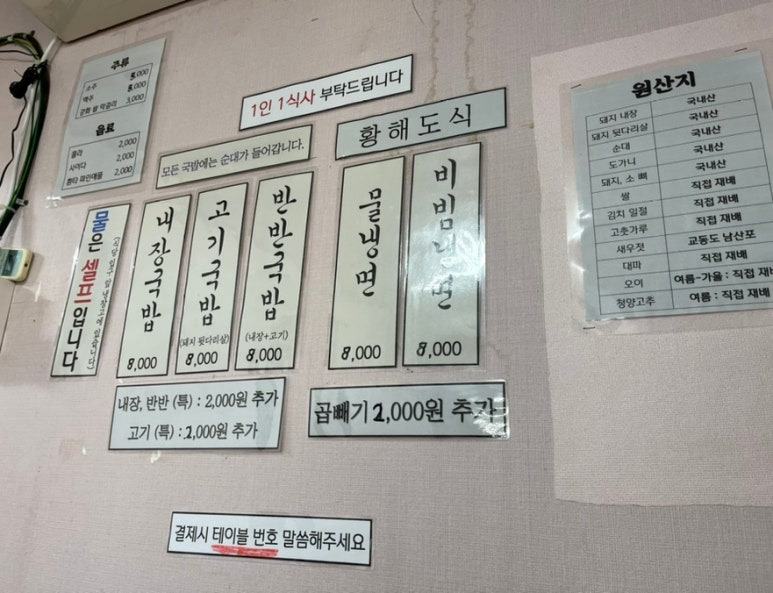 주류
소주 5,000
맥주 5,000
강화 쌀 막걸리 3,000
음료
콜라 2,000
사이다 2,000
환타 파인애플 2,000
1인 1식사 부탁드립니다
모든 국밥에는 순대가 들어갑니다.
황해도식
물은 셀프입니다
내장국밥
8,000
고기국밥
(돼지 뒷다리살)
8,000
반반국밥
(내장+고기)
8,000
물냉면
8,000
비빔냉면
8,000
내장, 반반 (특) : 2,000원 추가
고기 (특) : 2,000원 추가
곱빼기 2,000원 추가
결제시 테이블 번호 말씀해주세요
원산지
돼지 내장 국내산
돼지 뒷다리살 국내산
순대 국내산
도가니 국내산
돼지, 소 뼈 국내산
쌀 직접 재배
김치 일절 직접 재배
고춧가루 직접 재배
새우젓 교동도 남산포
대파 직접 재배
오이 여름-가을 : 직접 재배
청양고추 여름 : 직접 재배